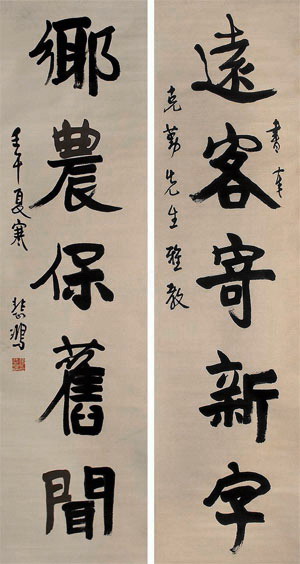 遠客寄新字
書奉
克勤先生雅教
鄉農保舊聞
壬午夏
悲鴻